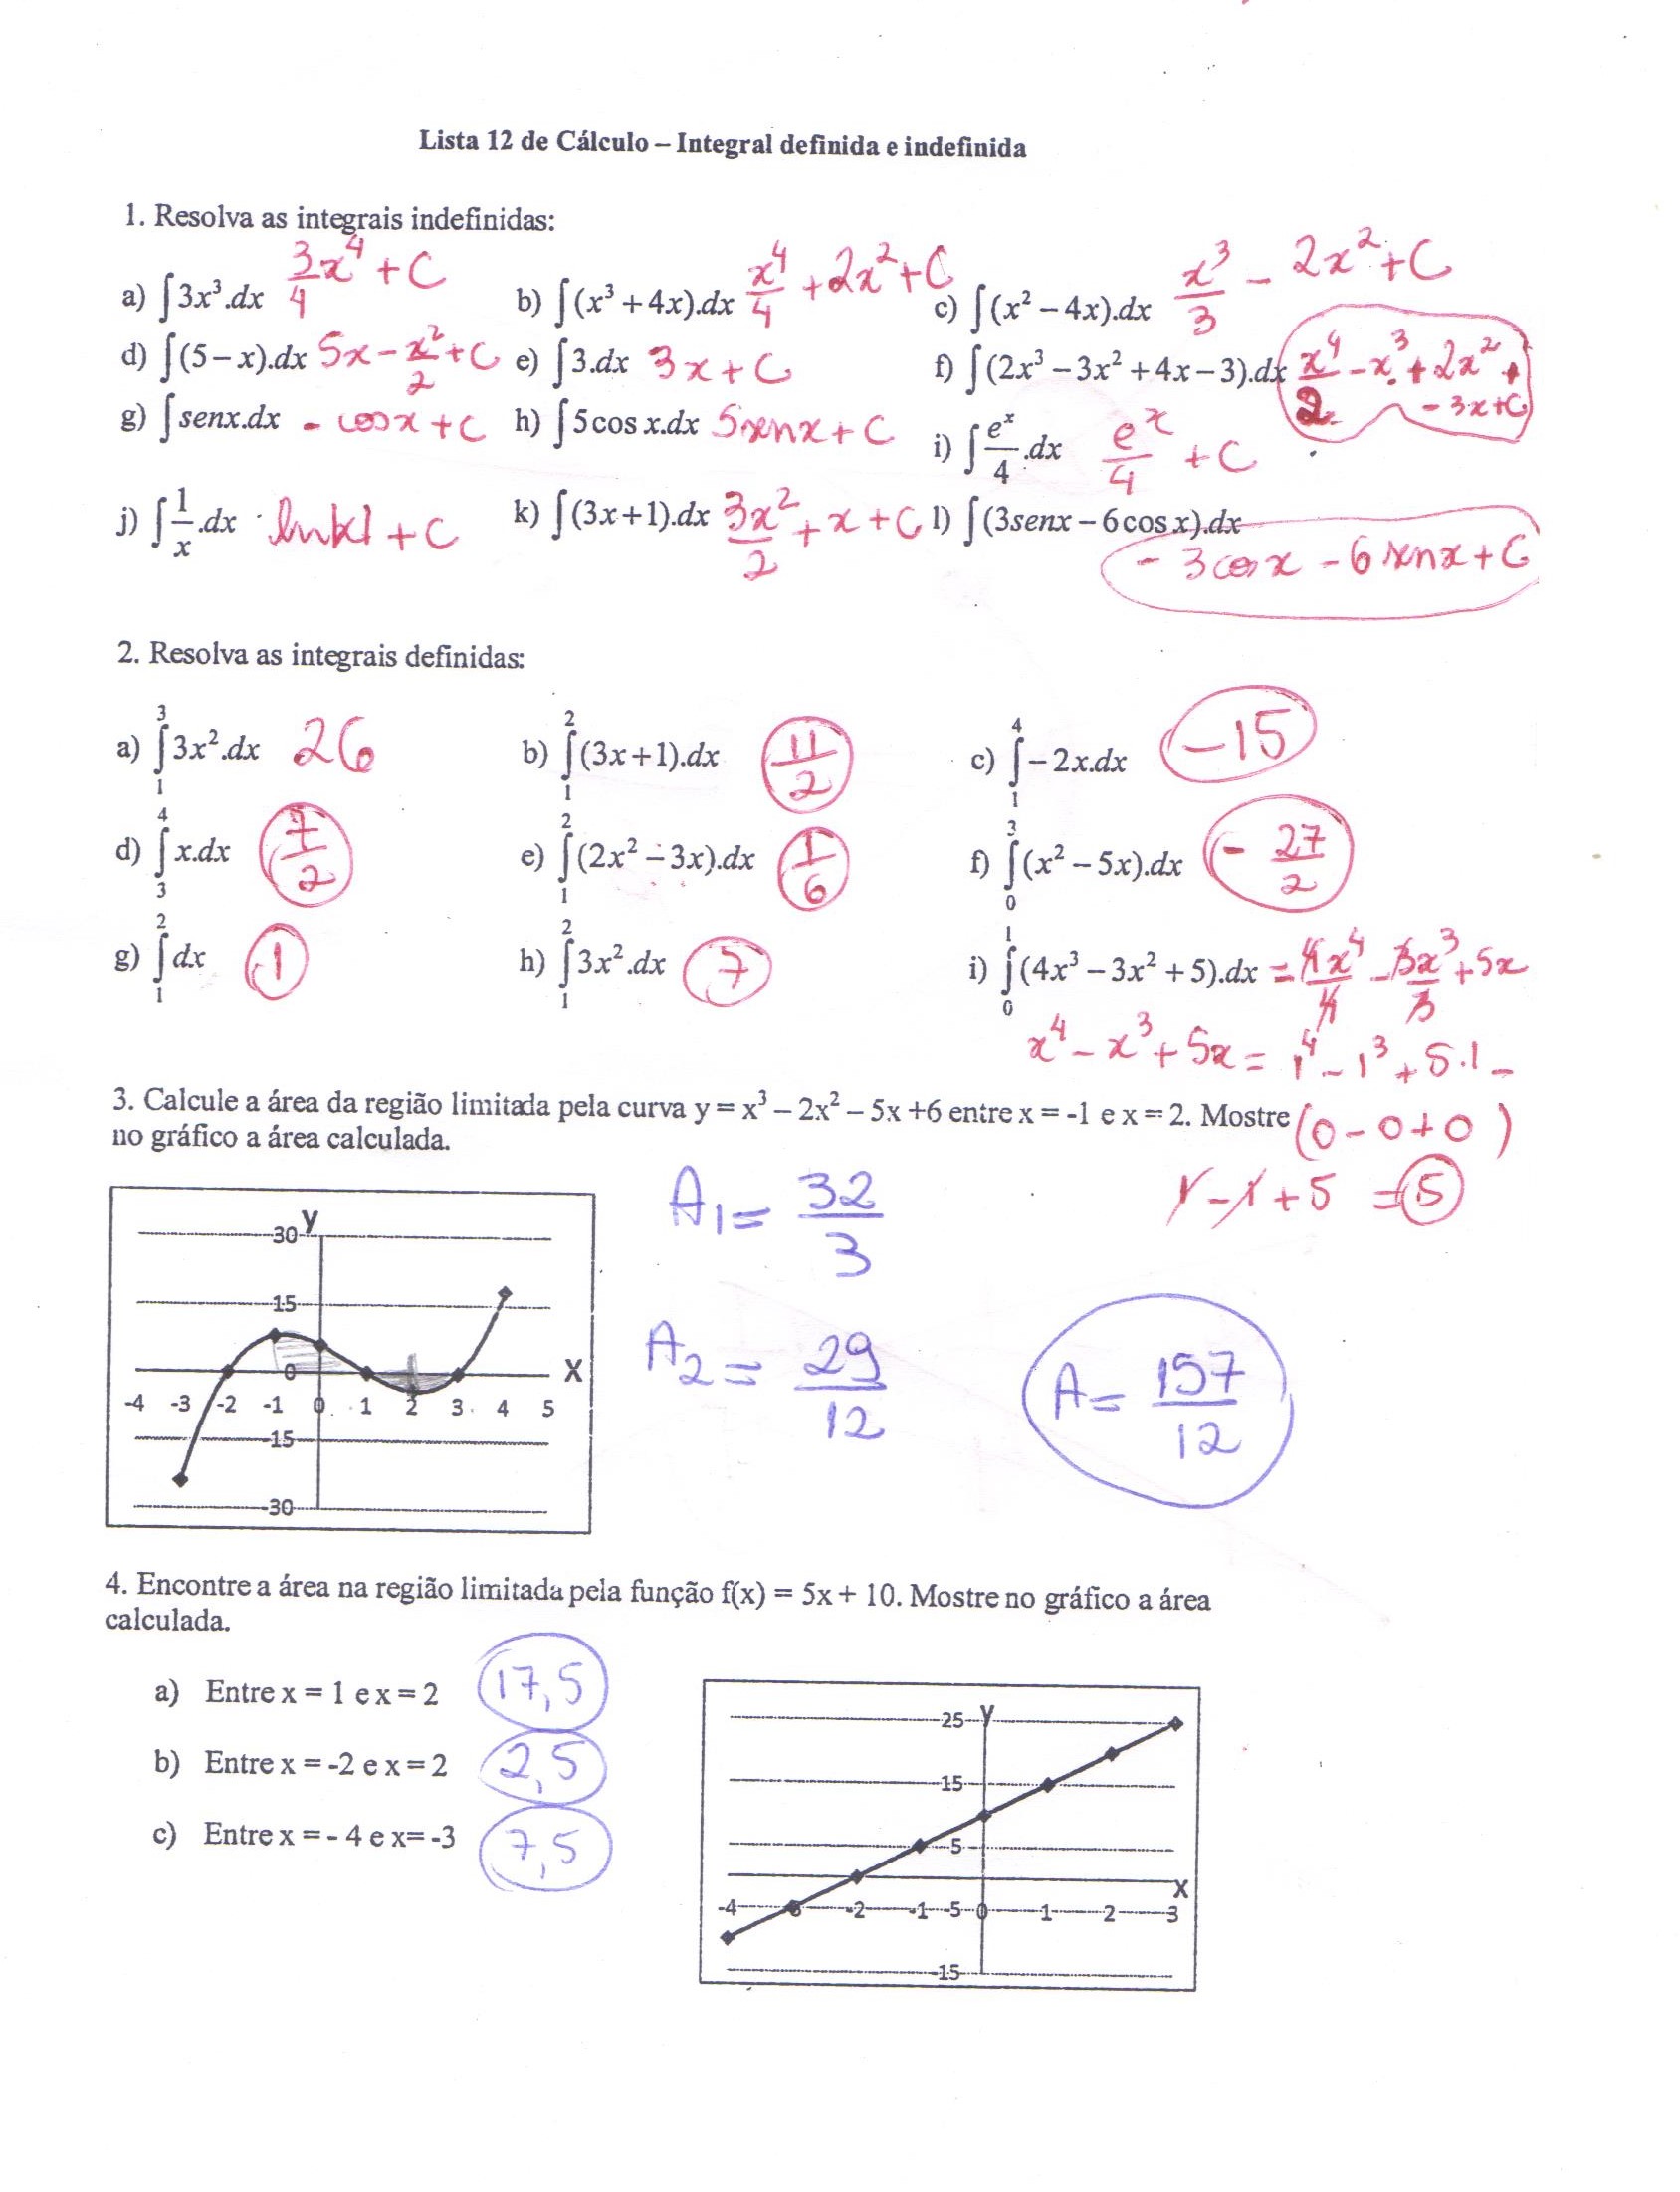 Lista 12 de Cálculo – Integral definida e indefinida
1. Resolva as integrais indefinidas:
a) ∫3x³.dx 3x⁴/4 + C b) ∫(x³ + 4x).dx x⁴/4 + 2x² + C c) ∫(x² – 4x).dx x³/3 – 2x² + C
d) ∫(5 – x).dx 5x – x²/2 + C e) ∫3.dx 3x + C f) ∫(2x³ – 3x² + 4x – 3).dx x⁴/2 – x³ + 2x² +
– 3x + C
g) ∫senx.dx – cosx + C h) ∫5cos x.dx 5senx + C i) ∫eˣ/4.dx eˣ/4 + C
j) ∫1/x.dx ln|x| + C k) ∫(3x+1).dx 3x²/2 + x + C l) ∫(3senx – 6cos x).dx
– 3cosx – 6senx + C
2. Resolva as integrais definidas:
a) ∫₁³ 3x².dx 26 b) ∫₁² (3x+1).dx 11/2 c) ∫₁⁴ – 2x.dx –15
d) ∫₃⁴ x.dx 7/2 e) ∫₁² (2x² – 3x).dx 1/6 f) ∫₀³ (x² – 5x).dx – 27/2
g) ∫₁² dx 1 h) ∫₁² 3x².dx 7 i) ∫₀¹ (4x³ – 3x² + 5).dx = 4x⁴/4 – 3x³/3 + 5x
x⁴ – x³ + 5x = 1⁴ – 1³ + 5.1 –
3. Calcule a área da região limitada pela curva y = x³ – 2x² – 5x +6 entre x = -1 e x = 2. Mostre (0 – 0 + 0)
no gráfico a área calculada.
1 – 1 + 5 = 5
A₁ = 32/3
A₂ = 29/12
A = 157/12
y
30
15
0
X
-4 -3 -2 -1 0 1 2 3 4 5
-15
-30
4. Encontre a área na região limitada pela função f(x) = 5x + 10. Mostre no gráfico a área
calculada.
a) Entre x = 1 e x = 2 17,5
b) Entre x = -2 e x = 2 2,5
c) Entre x = - 4 e x= -3 7,5
y
25
15
5
X
-4 -2 -1 -5 0 1 2 3
-15